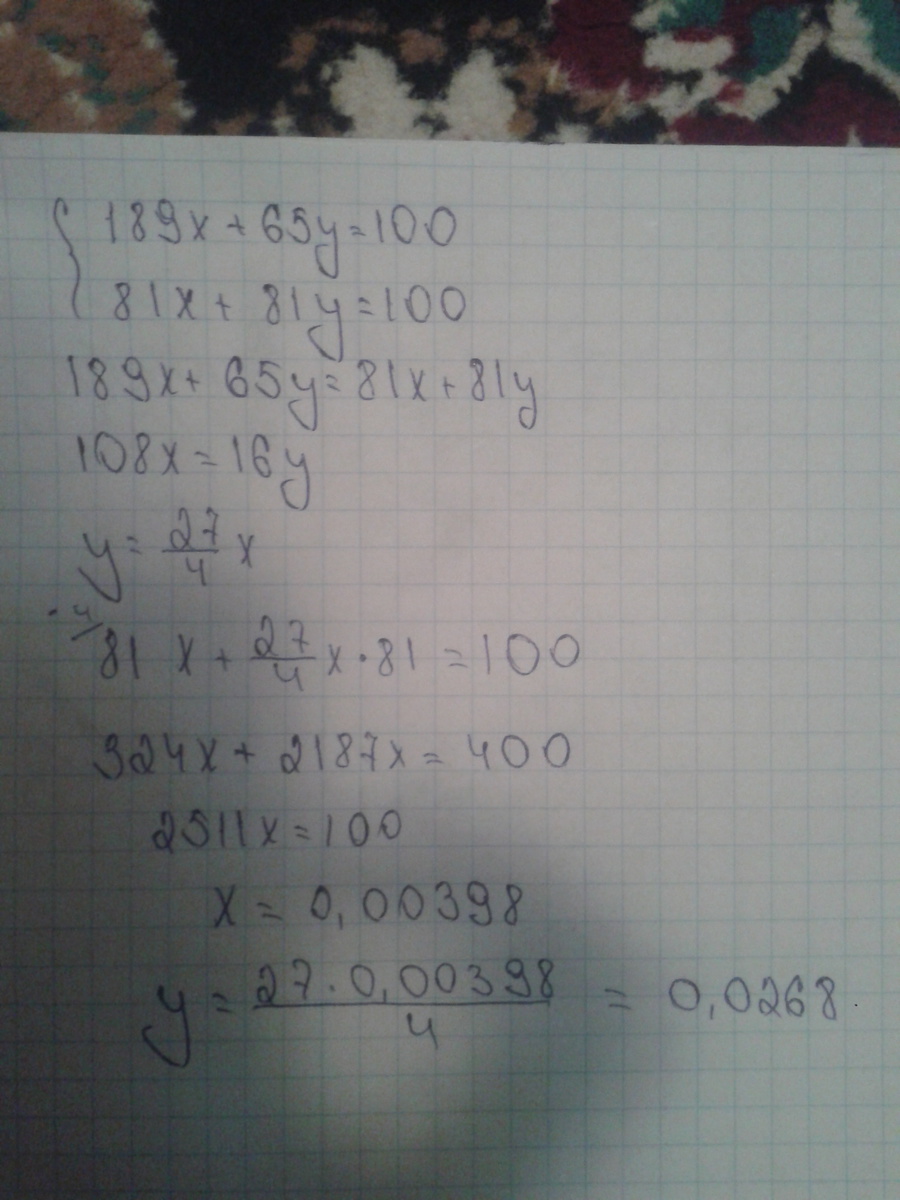 { 189x + 65y = 100
81x + 81y = 100
189x + 65y = 81x + 81y
108x = 16y
y = 27/4 x
·4/ 81 x + 27/4 x · 81 = 100
324x + 2187x = 400
2511x = 100
x = 0,00398
y = 27 · 0,00398 / 4 = 0,0268.